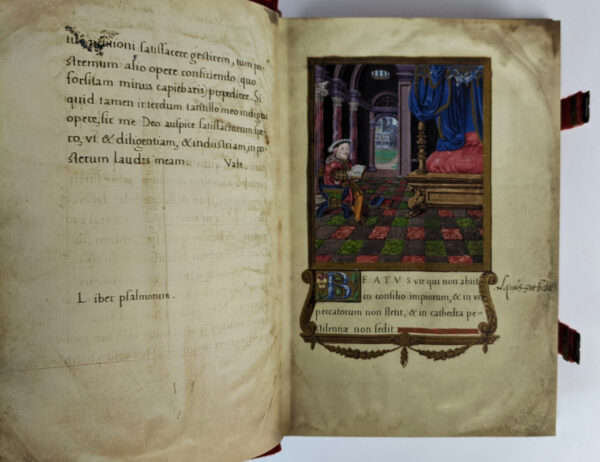 satisfacere gestirem, tum po-
stremum alio opere conficiendo quo
forsitam minus capiebaris Si
quid tamen interdum tantillo meo
opere, sic me Deo auspice satisfacturum
ro, vt & diligentiam, & industriam, in po
sterum laudis meam. Vale.
Liber psalmorum.
BEATVS vir qui non abiit
in consilio impiorum, & in via
peccatorum non stetit, & in cathedra pe-
stilentiæ non sedit